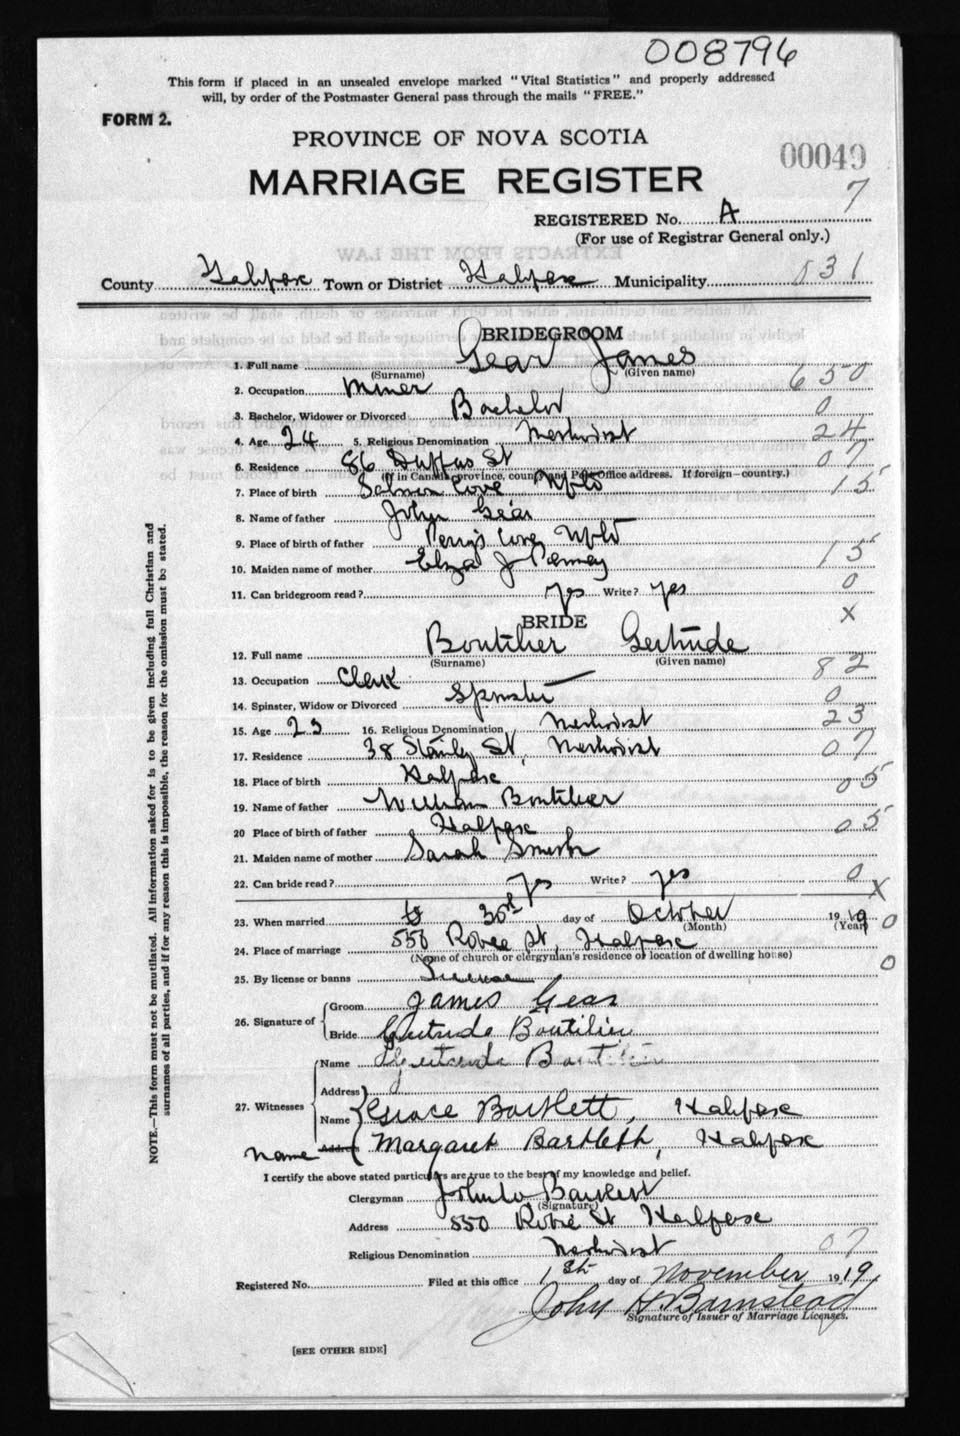 008796
This form if placed in an unsealed envelope marked "Vital Statistics" and properly addressed
will, by order of the Postmaster General pass through the mails "FREE."
FORM 2.
PROVINCE OF NOVA SCOTIA
00049
MARRIAGE REGISTER
7
REGISTERED No. A
(For use of Registrar General only.)
County Halifax Town or District Halifax Municipality 031
BRIDEGROOM
1. Full name Gear James
(Surname) (Given name)
2. Occupation Miner 650
3. Bachelor, Widower or Divorced Bachelor 0
4. Age 24 5. Religious Denomination Methodist 24
6. Residence 86 Duffus St 07
(If in Canada, province, county and Post Office address. If foreign—country.)
7. Place of birth Salmon Cove Nfld 15
8. Name of father John Gear
9. Place of birth of father Perrys Cove Nfld
10. Maiden name of mother Eliza J 15
11. Can bridegroom read? Yes Write? yes 0
BRIDE X
12. Full name Boutilier Gertrude
(Surname) (Given name)
13. Occupation Clerk 82
14. Spinster, Widow or Divorced Spinster 0
15. Age 23 16. Religious Denomination Methodist 23
17. Residence 38 Stanley St, Methodist 07
18. Place of birth Halifax 05
19. Name of father William Boutilier
20 Place of birth of father Halifax 05
21. Maiden name of mother Sarah Smith
22. Can bride read? Yes Write? yes 0 X
23. When married 30th day of October 1919 0
(Month) (Year)
24. Place of marriage 550 Robie St, Halifax
(Name of church or clergyman's residence or location of dwelling house) 0
25. By license or banns License
26. Signature of Groom James Gear
Bride Gertrude Boutilier
27. Witnesses Name Gertrude Boutilier
Address
Name Grace Bartlett, Halifax
Name Address Margaret Bartlett, Halifax
I certify the above stated particulars are true to the best of my knowledge and belief.
Clergyman John W Bartlett
(Signature)
Address 550 Robie St Halifax
Religious Denomination Methodist 07
Registered No. Filed at this office 1st day of November 1919,
John H. Barnstead
Signature of Issuer of Marriage Licenses.
[SEE OTHER SIDE]
NOTE.—This form must not be mutilated. All information asked for is to be given including full Christian and
surnames of all parties, and if for any reason this is impossible, the reason for the omission must be stated.